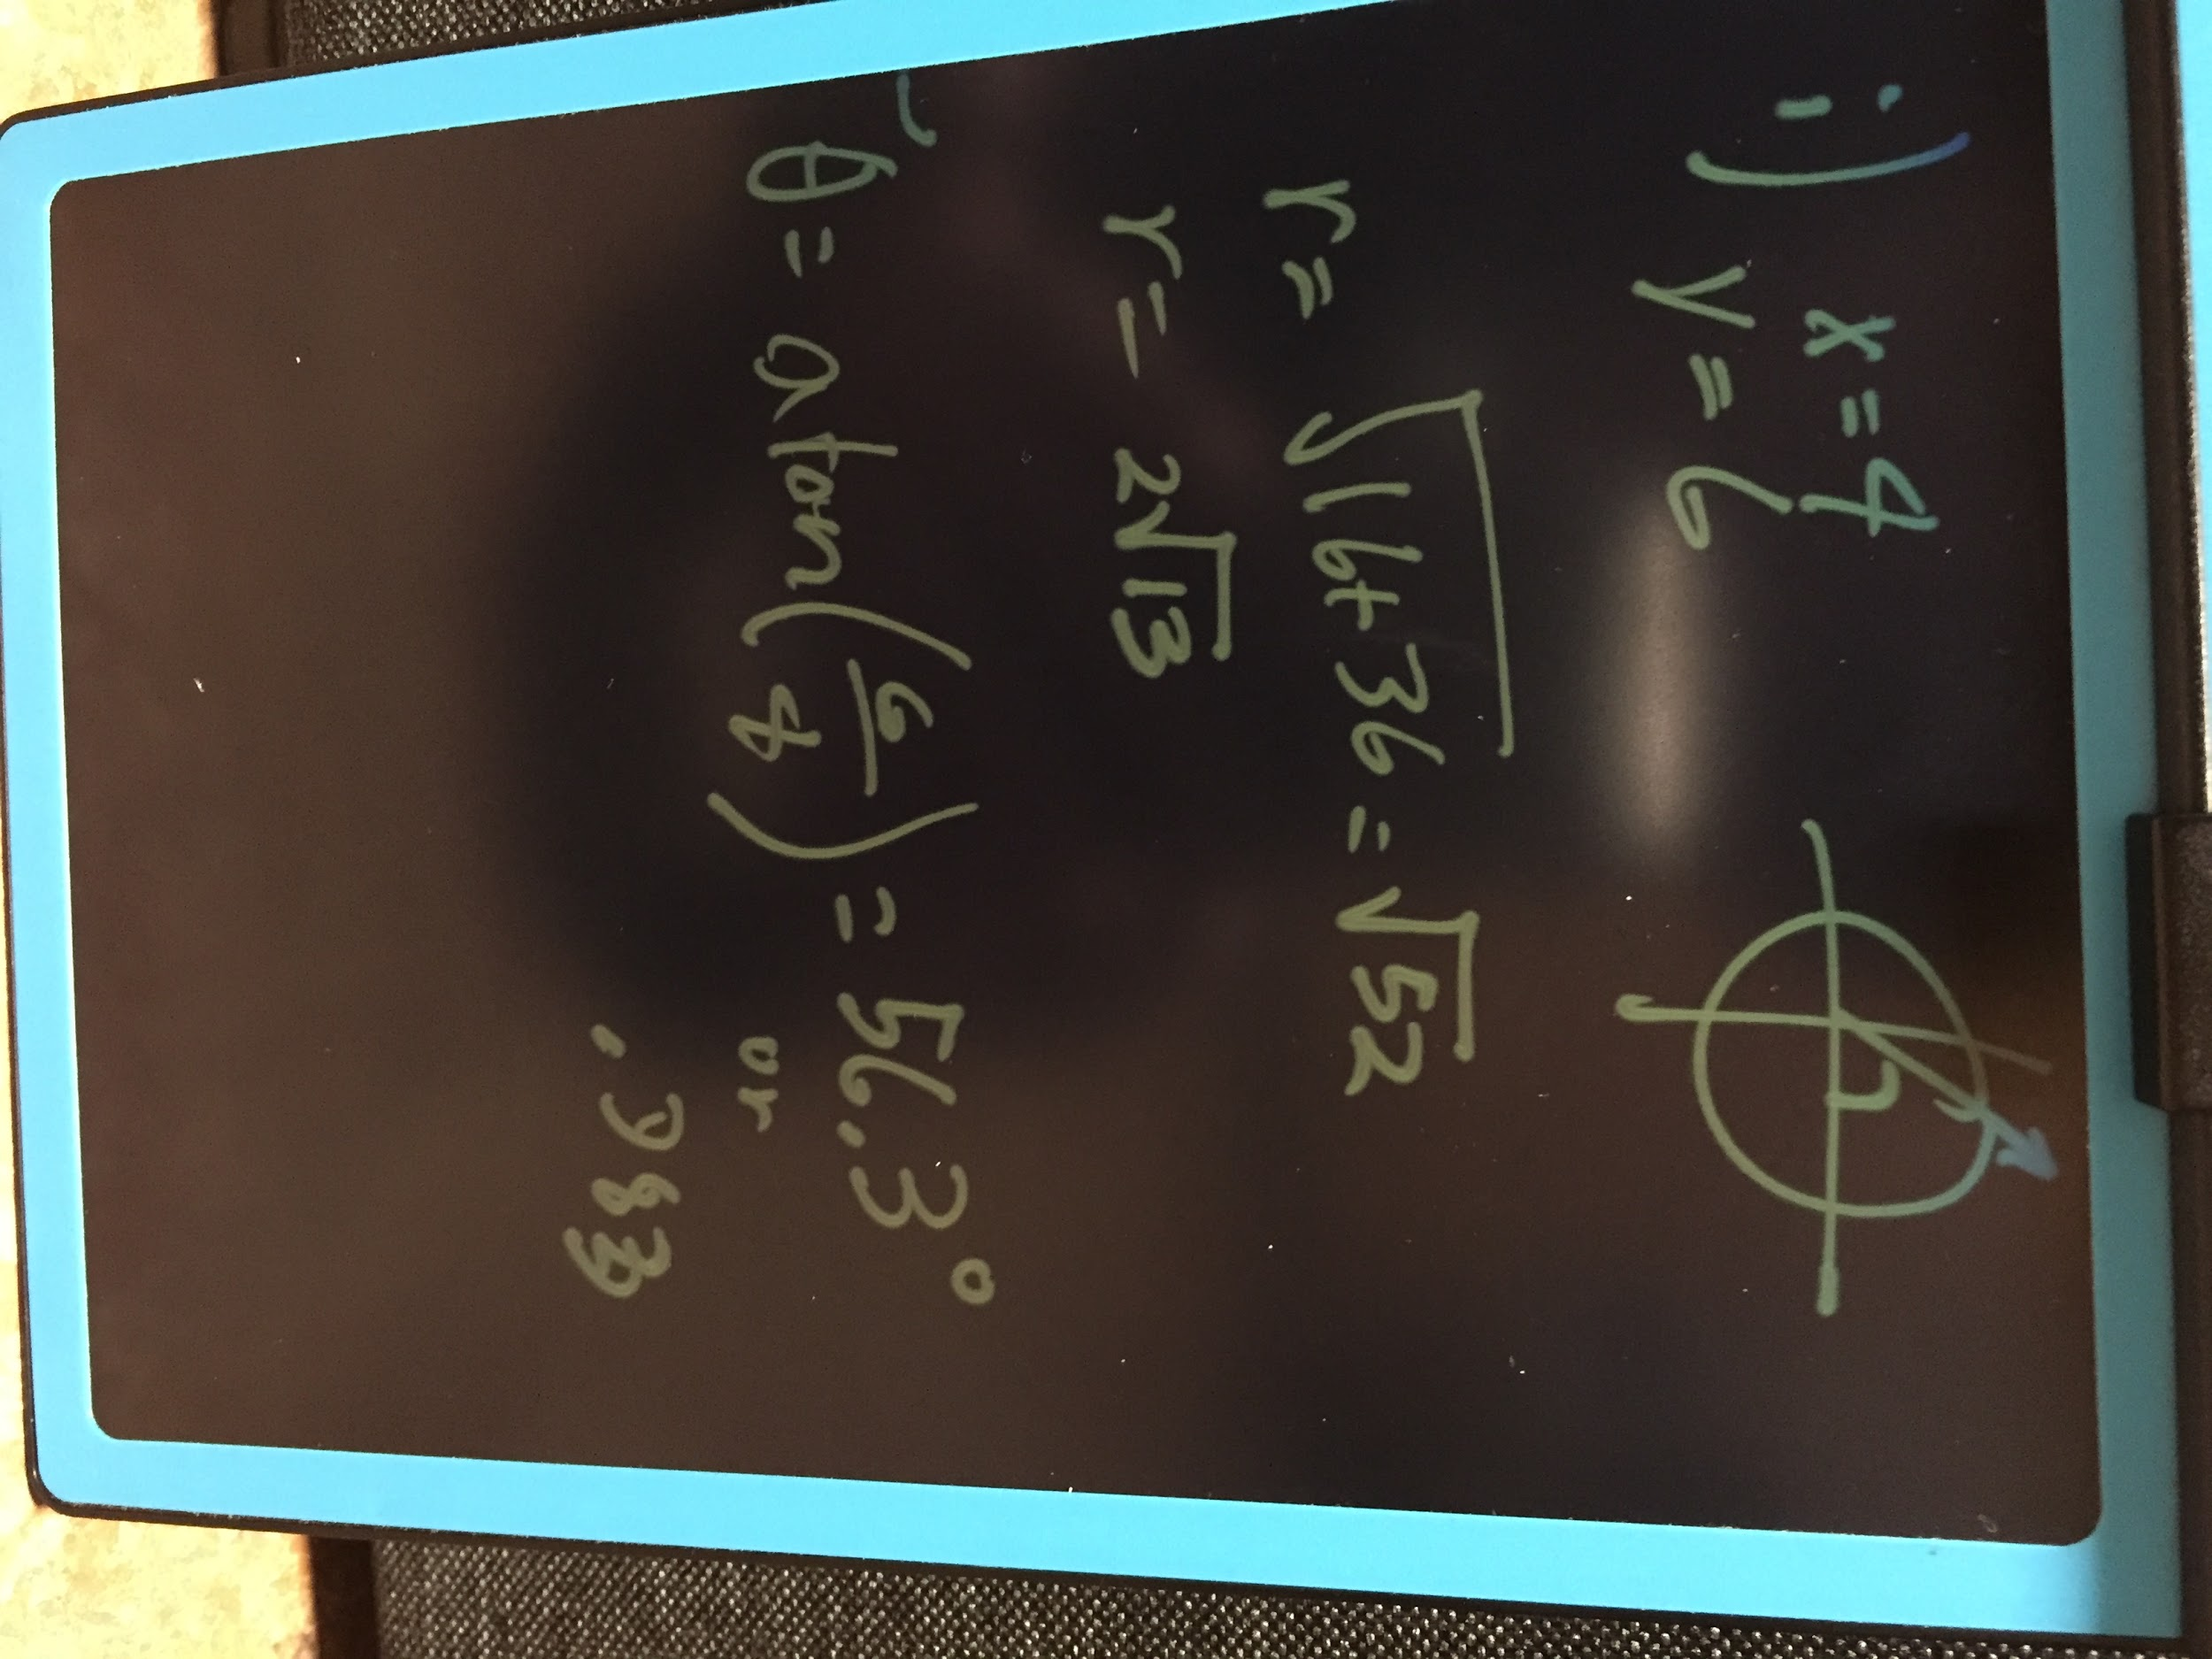 i) x = 4
y = 6
r = √16+36 = √52
r = 2√13
θ = atan(6/4) = 56.3°
or
.983